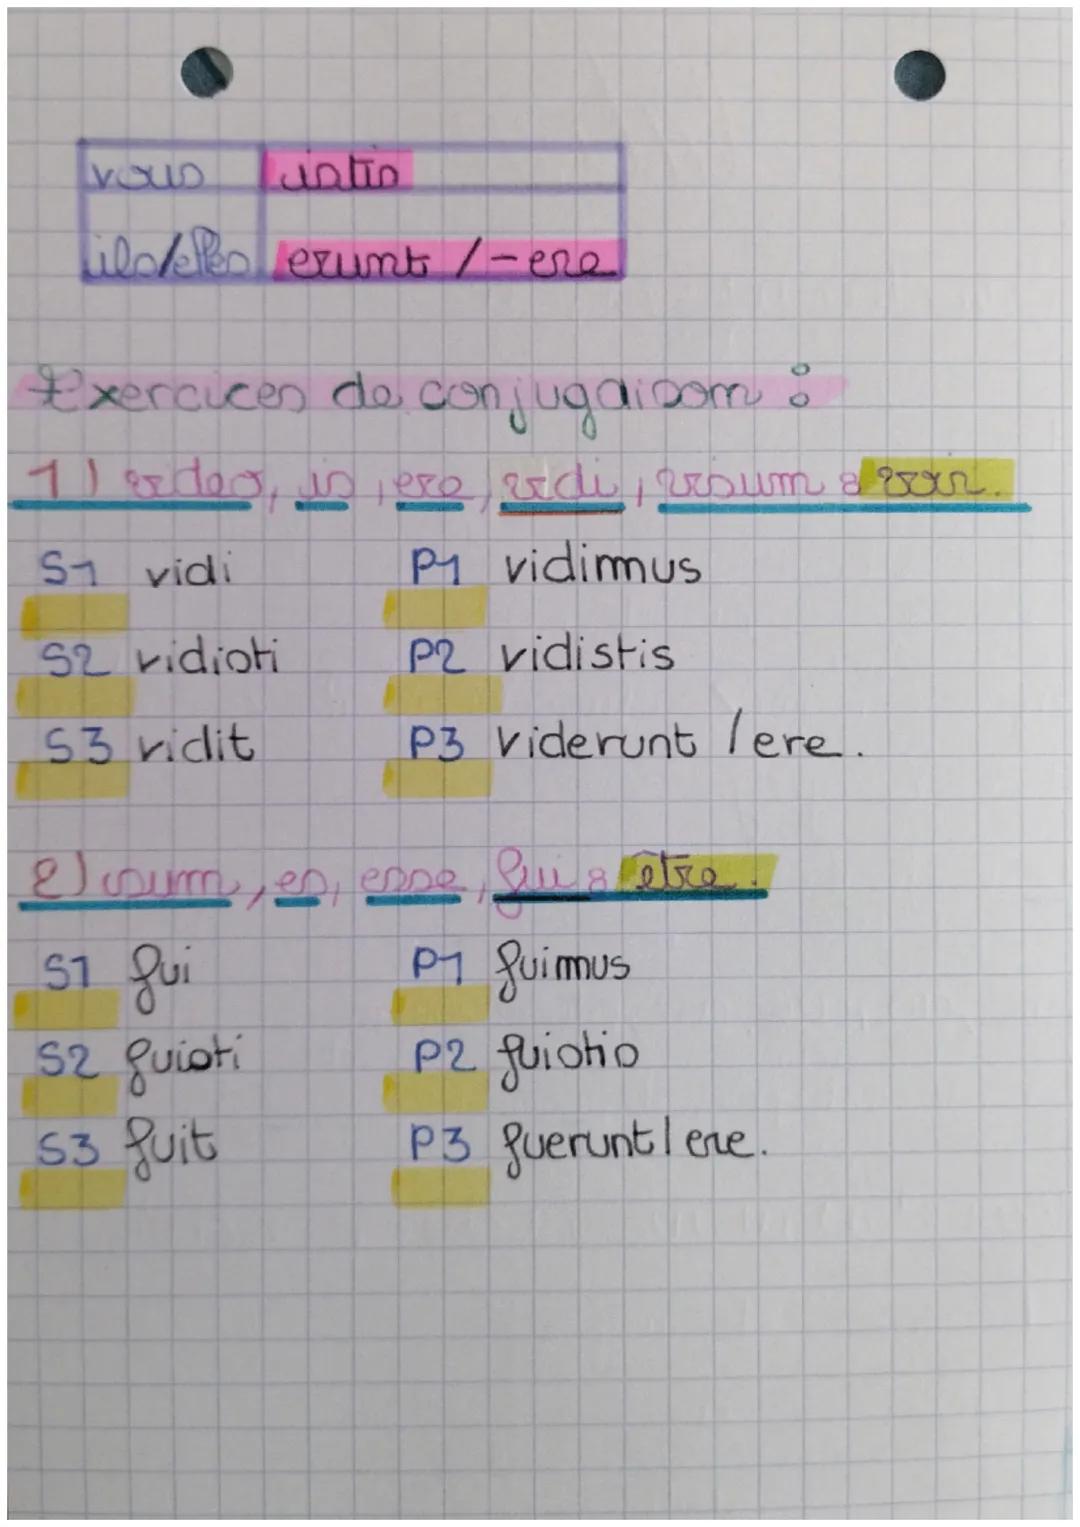 vous istis
ils/elles erunt / -ere
Exercices de conjugaison :
1) video, es, ere, vidi, visum : voir.
S1 vidi P1 vidimus
S2 vidisti P2 vidistis
S3 vidit P3 viderunt / ere.
2) sum, es, esse, fui : être.
S1 fui P1 fuimus
S2 fuisti P2 fuistis
S3 fuit P3 fuerunt / ere.